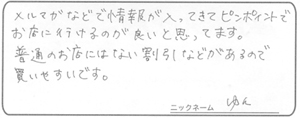 メルマガなどで情報が入ってきてピンポイントで
お店に行けるのが良いと思ってます。
普通のお店にはない割引などがあるので
買いやすいです。
ニックネーム ゆん